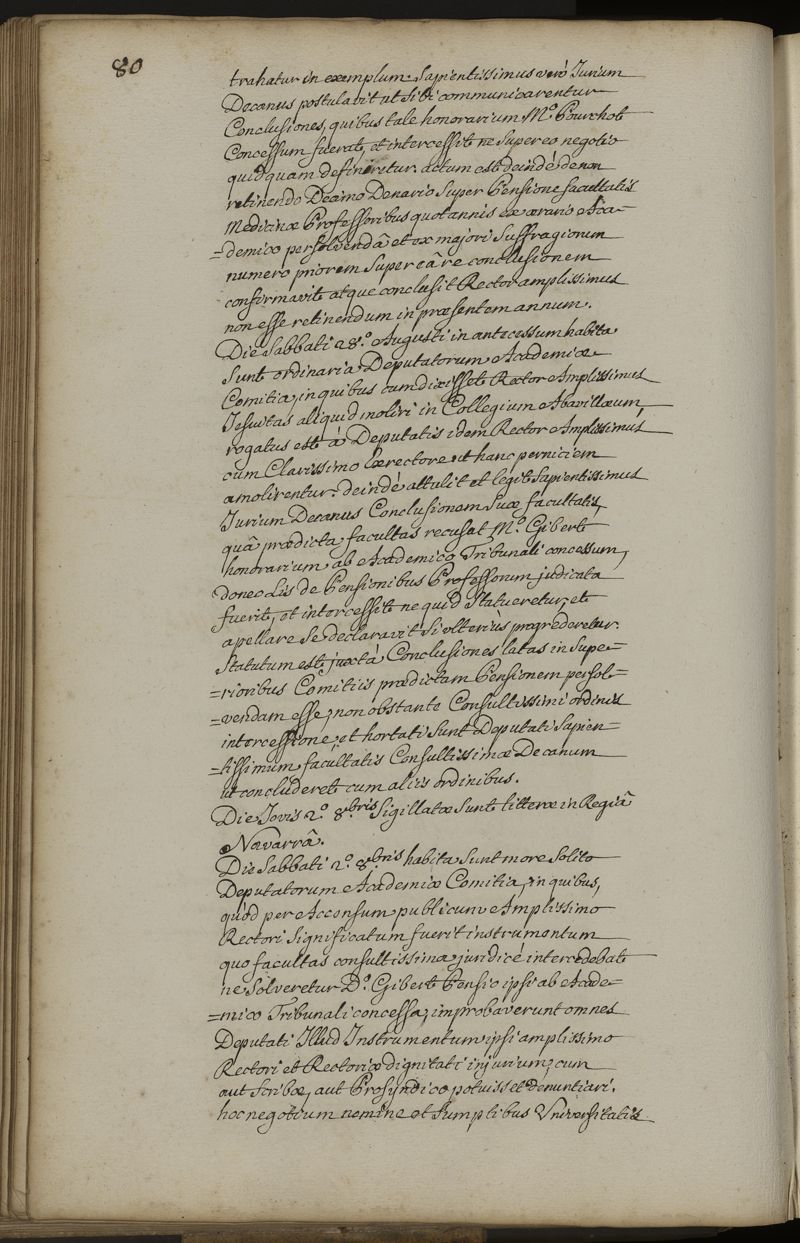 80
trahatur in exemplum. Sapientissimus verò Jurium
Decanus postulavit ut sibi communicarentur
Conclusiones, quibus tale honorarium Mo. Pourchot
Concessum fuerat, et intercessit ne super eo negotio
quidquam definiretur. actum est deindè de non
retinendo Decimo Denario super Pensione facultatis
Medicinæ Professoribus quotannis ex ærario Aca=
=demico persolvendâ et ex majori suffragiorum
numero priorem super eâ re conclusionem
confirmavit atque conclusit Rector amplissimus
non esse retinendum in præsentem annum.
Die Sabbati 28.o Augusti in antecessum habita
sunt ordinaria Deputatorum Academiæ
Comitia, in quibus cum dixisset Rector Amplissimus
Jesuitas aliquid moliri in Collegium Abavillæum,
rogatus est à Deputatis idem Rector Amplissimus
cum Clarissimo Exrectore ut hanc perniciem
amolirentur. deindè attulit et legit sapientissimus
Jurium Decanus Conclusionem suæ facultatis,
quâ prædicta facultas recusat Mo. Gibert
honorarium ab Academico Tribunali concessum,
donec Lis de Pensionibus Professorum judicata
fuerit, et intercessit ne quid statueretur, et
apellare se declaravit si ulterius progrederetur.
Statutum est juxtà Conclusiones latas in supe=
=rioribus Comitiis prædictam Pensionem persol=
=vendam esse, non obstante Consultissimi ordinis
intercessione, et hortati sunt Deputati sapien=
=tissimum facultatis Consultissimæ Decanum
ut concluderet cum aliis ordinibus.
Die Jovis 2.o 8.bris Sigillatæ sunt litteræ in Regiâ
Navarrâ.
Die Sabbati 2.o 8.bris habita sunt more solito
Deputatorum Academiæ Comitia, in quibus,
quòd per Accensum publicum Amplissimo
Rectori significatum fuerit instrumentum
quo facultas consultissima juridicè intercedebat
ne solveretur D.o Gibert Pensio ipsi ab Acade=
=mico Tribunali concessa, improbaverunt omnes
Deputati Illud Instrumentum ipsi amplissimo
Rectori et Rectoriæ dignitati injurium; cum
aut scribæ, aut Prosyndico potuisset denuntiari.
hoc negotium nomine et sumptibus Universitatis